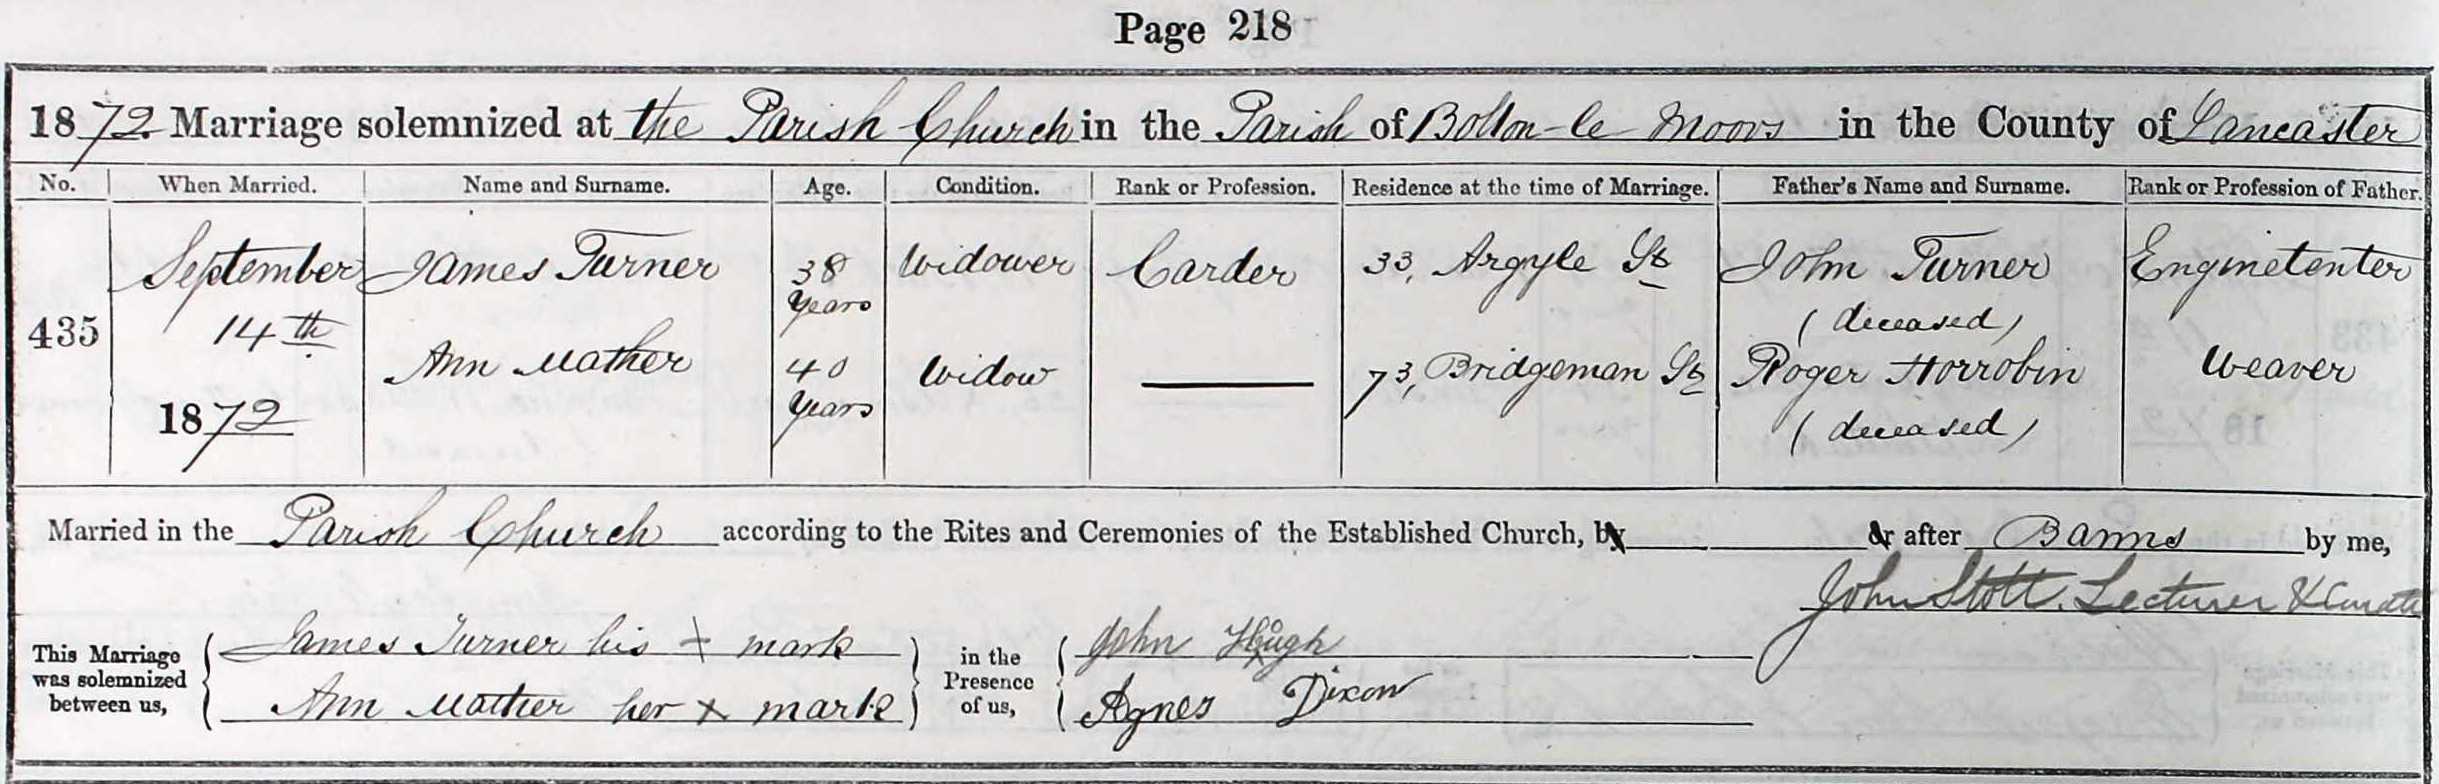 Page 218
1872 Marriage solemnized at the Parish Church in the Parish of Bolton-le Moors in the County of Lancaster
No. When Married. Name and Surname. Age. Condition. Rank or Profession. Residence at the time of Marriage. Father's Name and Surname. Rank or Profession of Father.
435 September 14th 1872
James Turner 38 Years Widower Carder 33, Argyle St John Turner (deceased) Enginetenter
Ann Mather 40 Years Widow 73, Bridgeman St Roger Horrobin (deceased) Weaver
Married in the Parish Church according to the Rites and Ceremonies of the Established Church, by or after Banns by me,
John Stott. Lecturer & Curate
This Marriage was solemnized between us,
James Turner his + mark
Ann Mather her x mark
in the Presence of us,
John Hough
Agnes Dixon